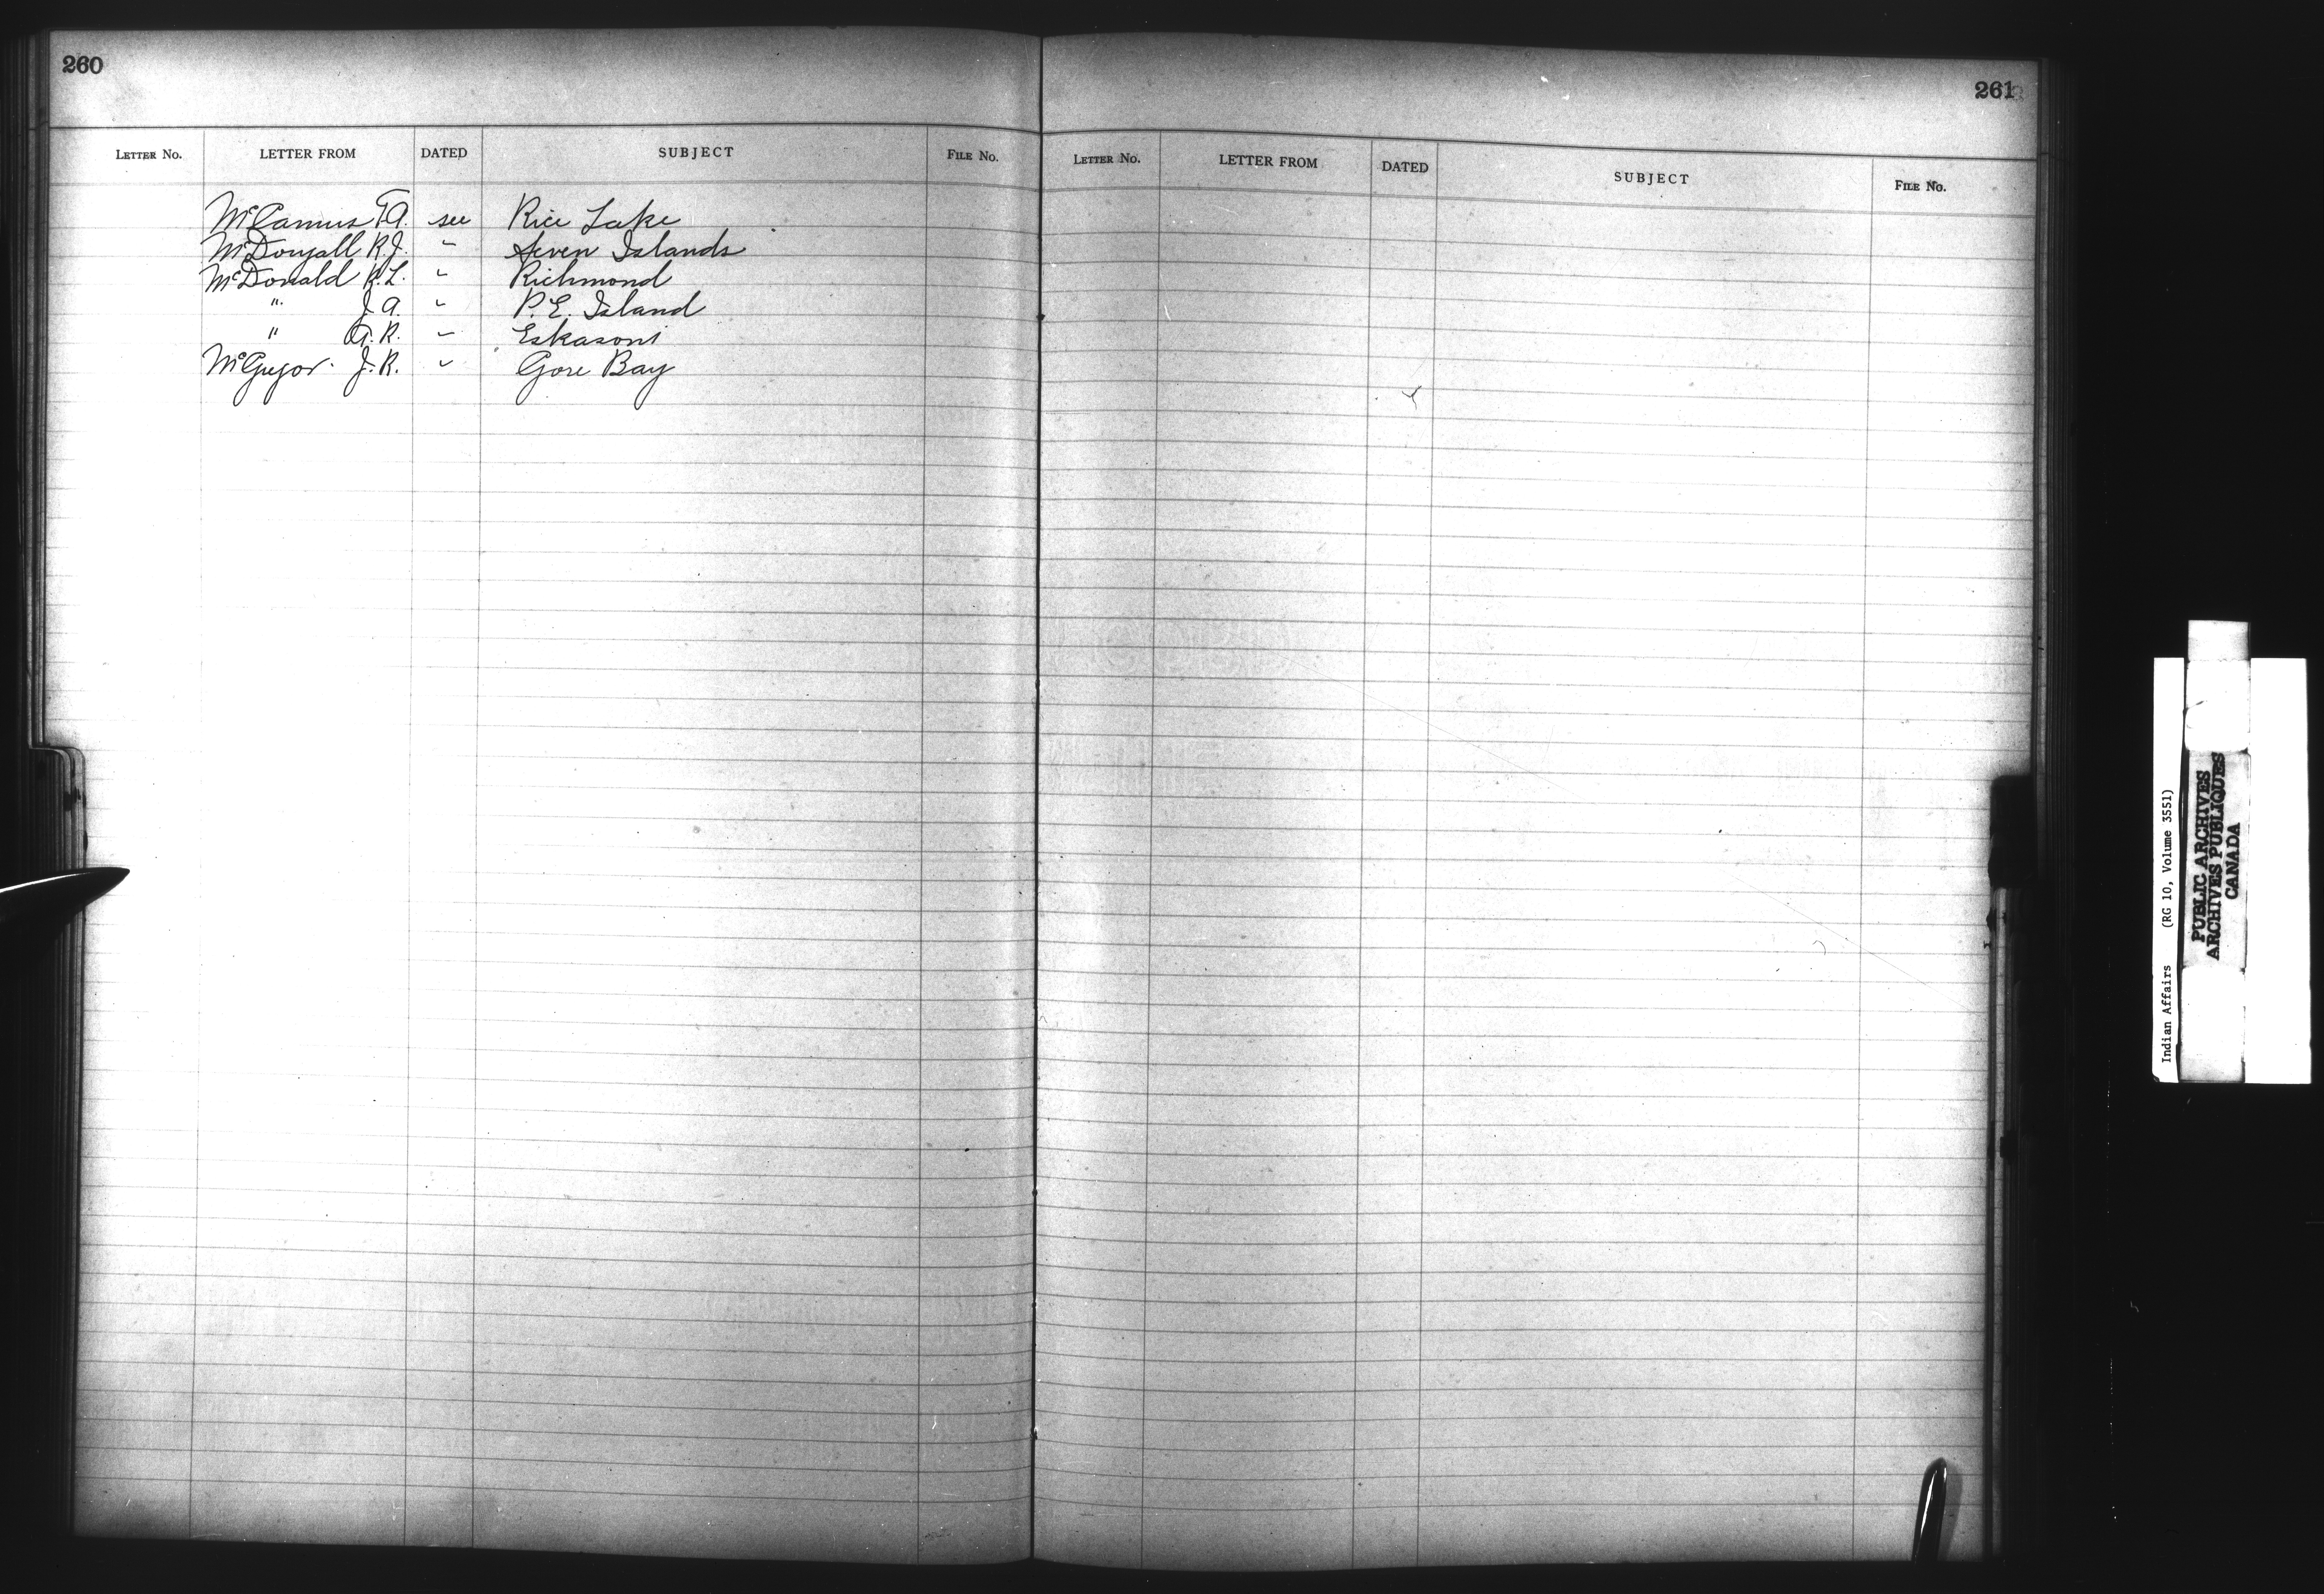 260
LETTER No. LETTER FROM DATED SUBJECT FILE No.
McCamus T.A. see Rice Lake
McDougall R.J. " Seven Islands
McDonald R.L. " Richmond
" J.A. " P.E. Island
" A.R. " Eskasoni
McGregor. J.R. " Gore Bay
261
LETTER No. LETTER FROM DATED SUBJECT FILE No.
Indian Affairs (RG 10, Volume 3551)
PUBLIC ARCHIVES
ARCHIVES PUBLIQUES
CANADA